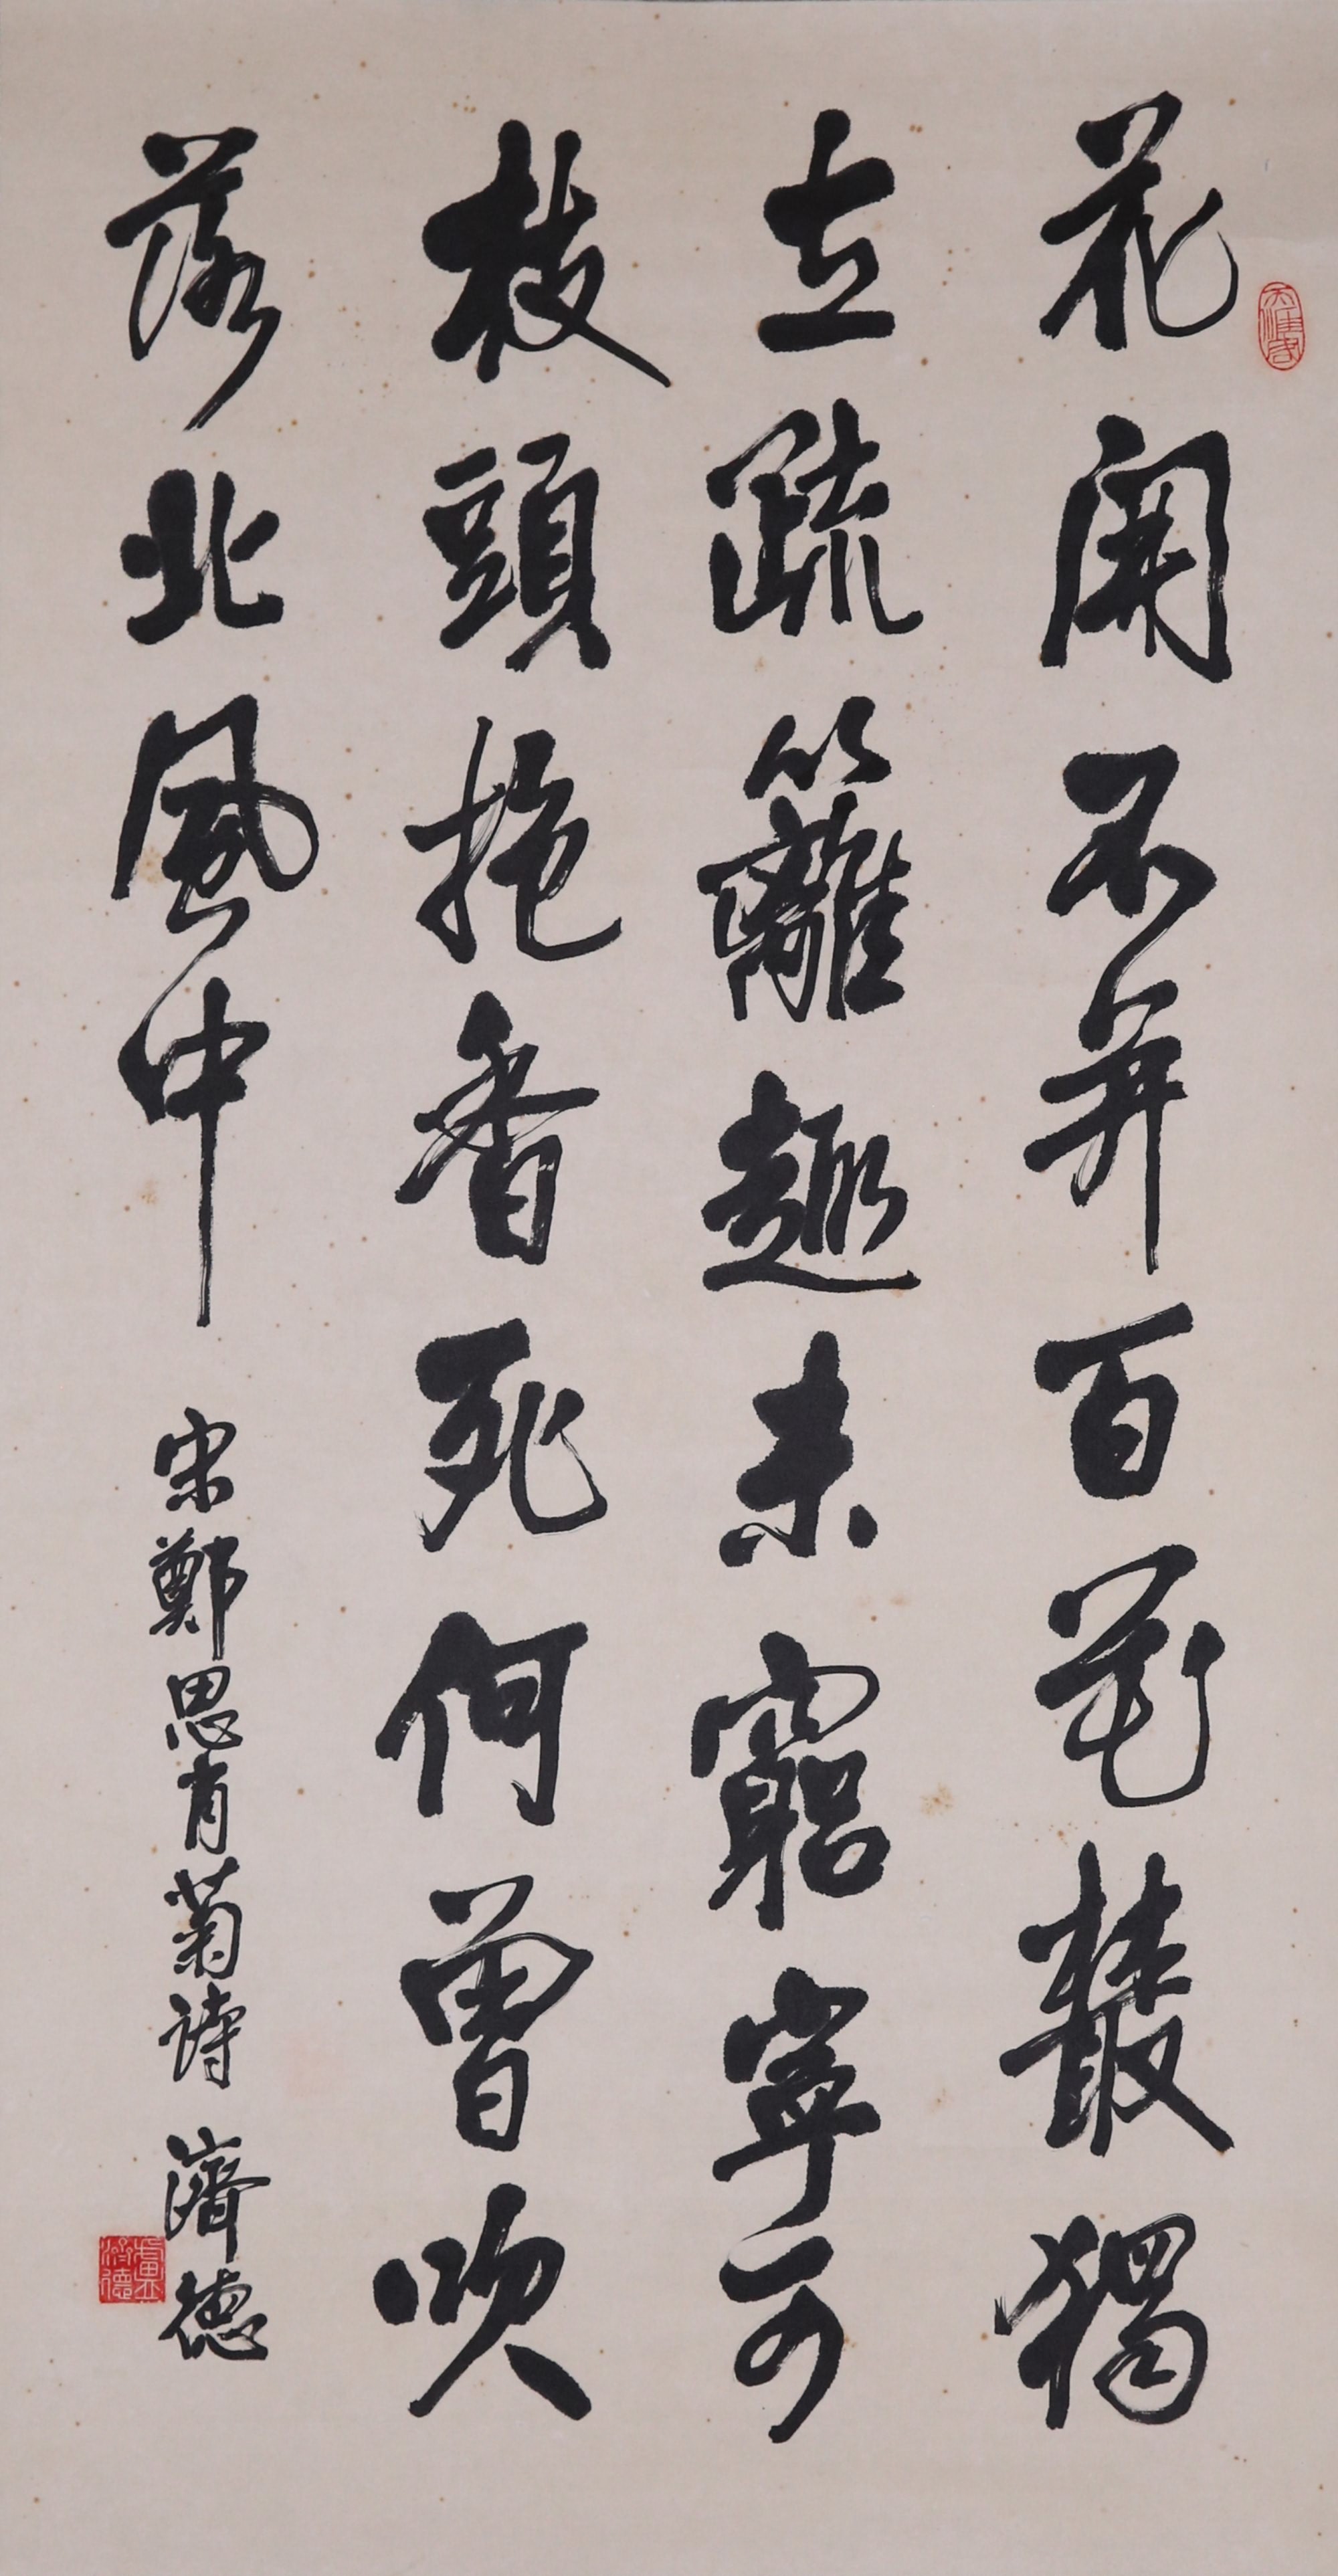 花開不並百花叢獨
立疏籬趣未窮寧可
枝頭抱香死何曾吹
落北風中
宋鄭思肖菊詩 濟德